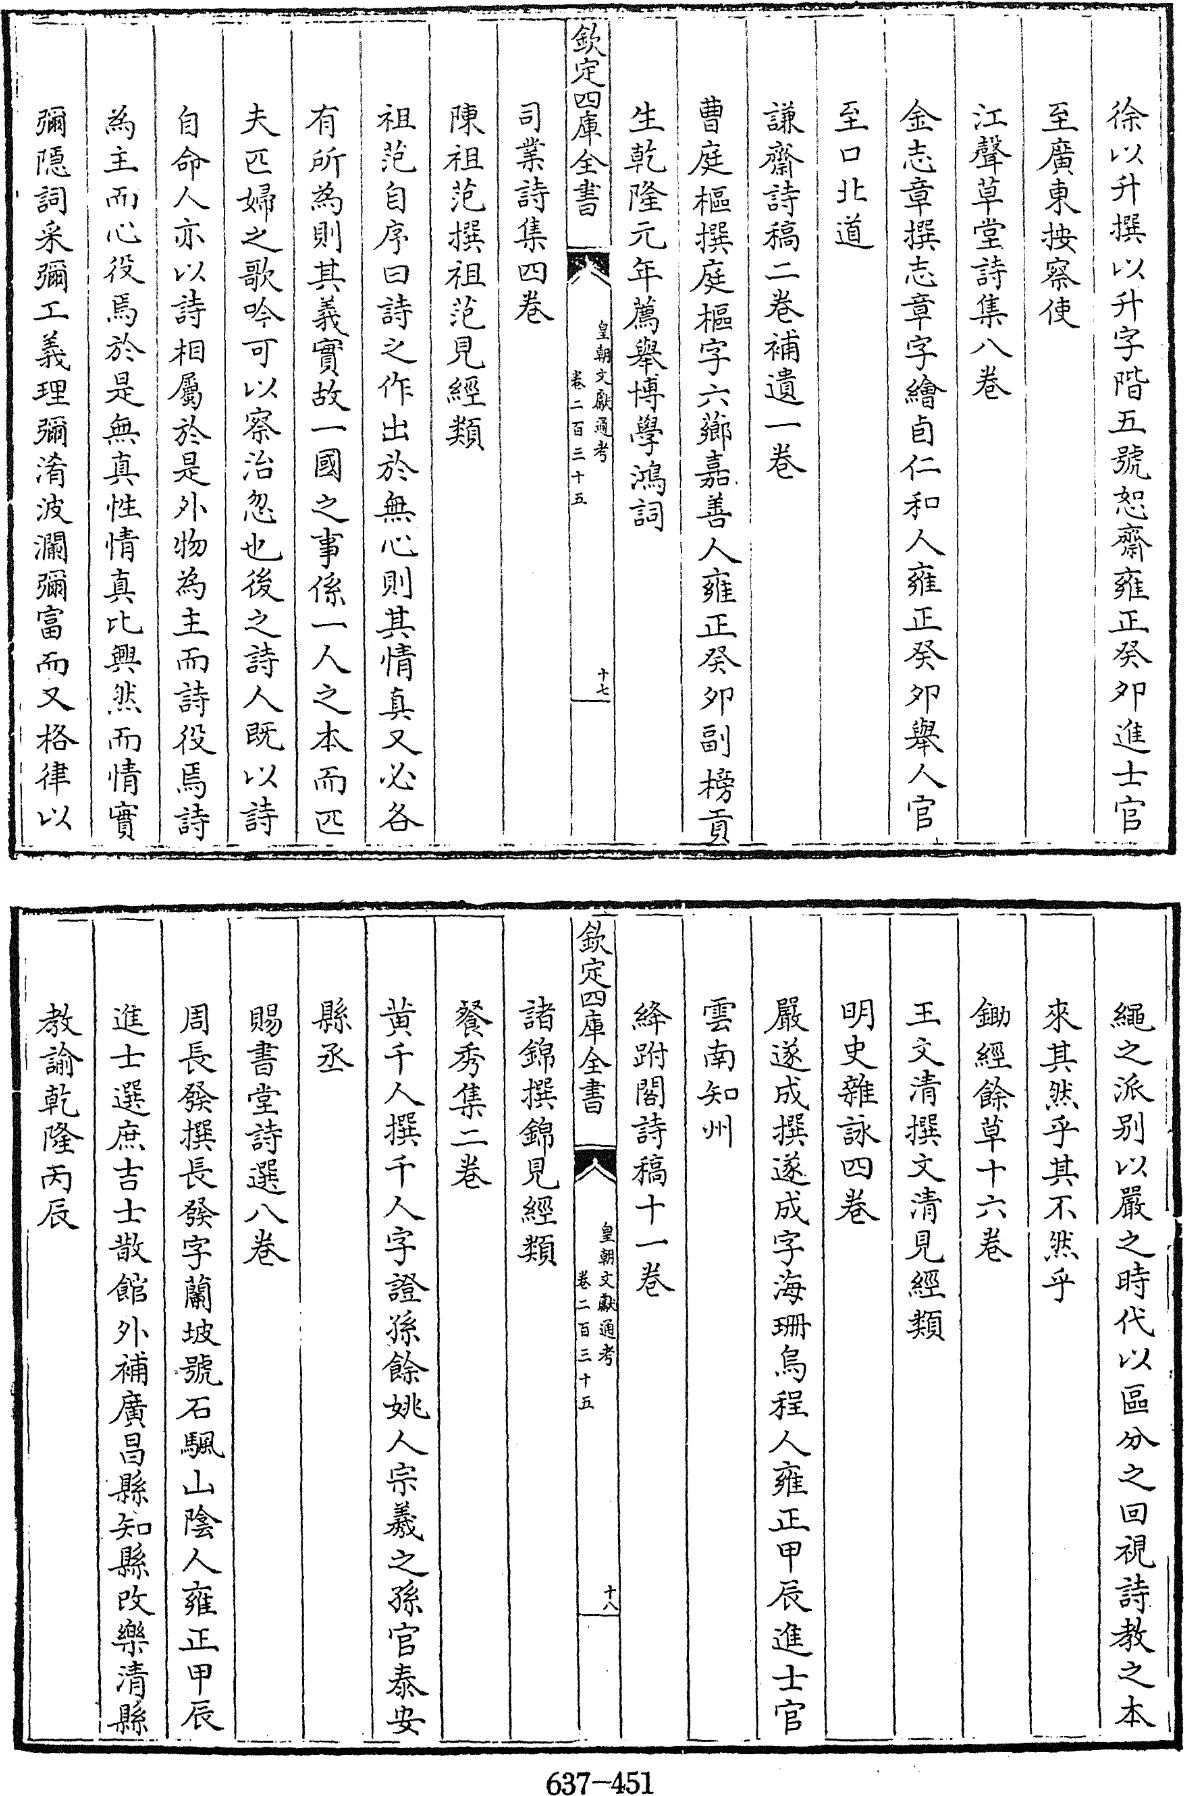 徐以升撰以升字階五號恕齋雍正癸夘進士官
至廣東按察使
江聲草堂詩集八卷
金志章撰志章字繪卣仁和人雍正癸夘舉人官
至口北道
謙齋詩稿二卷補遺一卷
曹庭樞撰庭樞字六薌嘉善人雍正癸夘副榜貢
生乾隆元年薦舉博學鴻詞
欽定四庫全書
皇朝文獻通考
卷二百三十五
十七
司業詩集四卷
陳祖范撰祖范見經類
祖范自序曰詩之作出於無心則其情真又必各
有所為則其義實故一國之事係一人之本而匹
夫匹婦之歌吟可以察治忽也後之詩人既以詩
自命人亦以詩相屬於是外物為主而詩役焉詩
為主而心役焉於是無真性情真比興然而情實
彌隱詞采彌工義理彌淆波瀾彌富而又格律以
繩之派别以嚴之時代以區分之回視詩教之本
來其然乎其不然乎
鋤經餘草十六卷
王文清撰文清見經類
明史雜詠四卷
嚴遂成撰遂成字海珊烏程人雍正甲辰進士官
雲南知州
絳跗閣詩稿十一卷
欽定四庫全書
皇朝文獻通考
卷二百三十五
十八
諸錦撰錦見經類
餐秀集二卷
黄千人撰千人字證孫餘姚人宗羲之孫官泰安
縣丞
賜書堂詩選八卷
周長發撰長發字蘭坡號石颿山陰人雍正甲辰
進士選庶吉士散館外補廣昌縣知縣改樂清縣
教諭乾隆丙辰
637-451